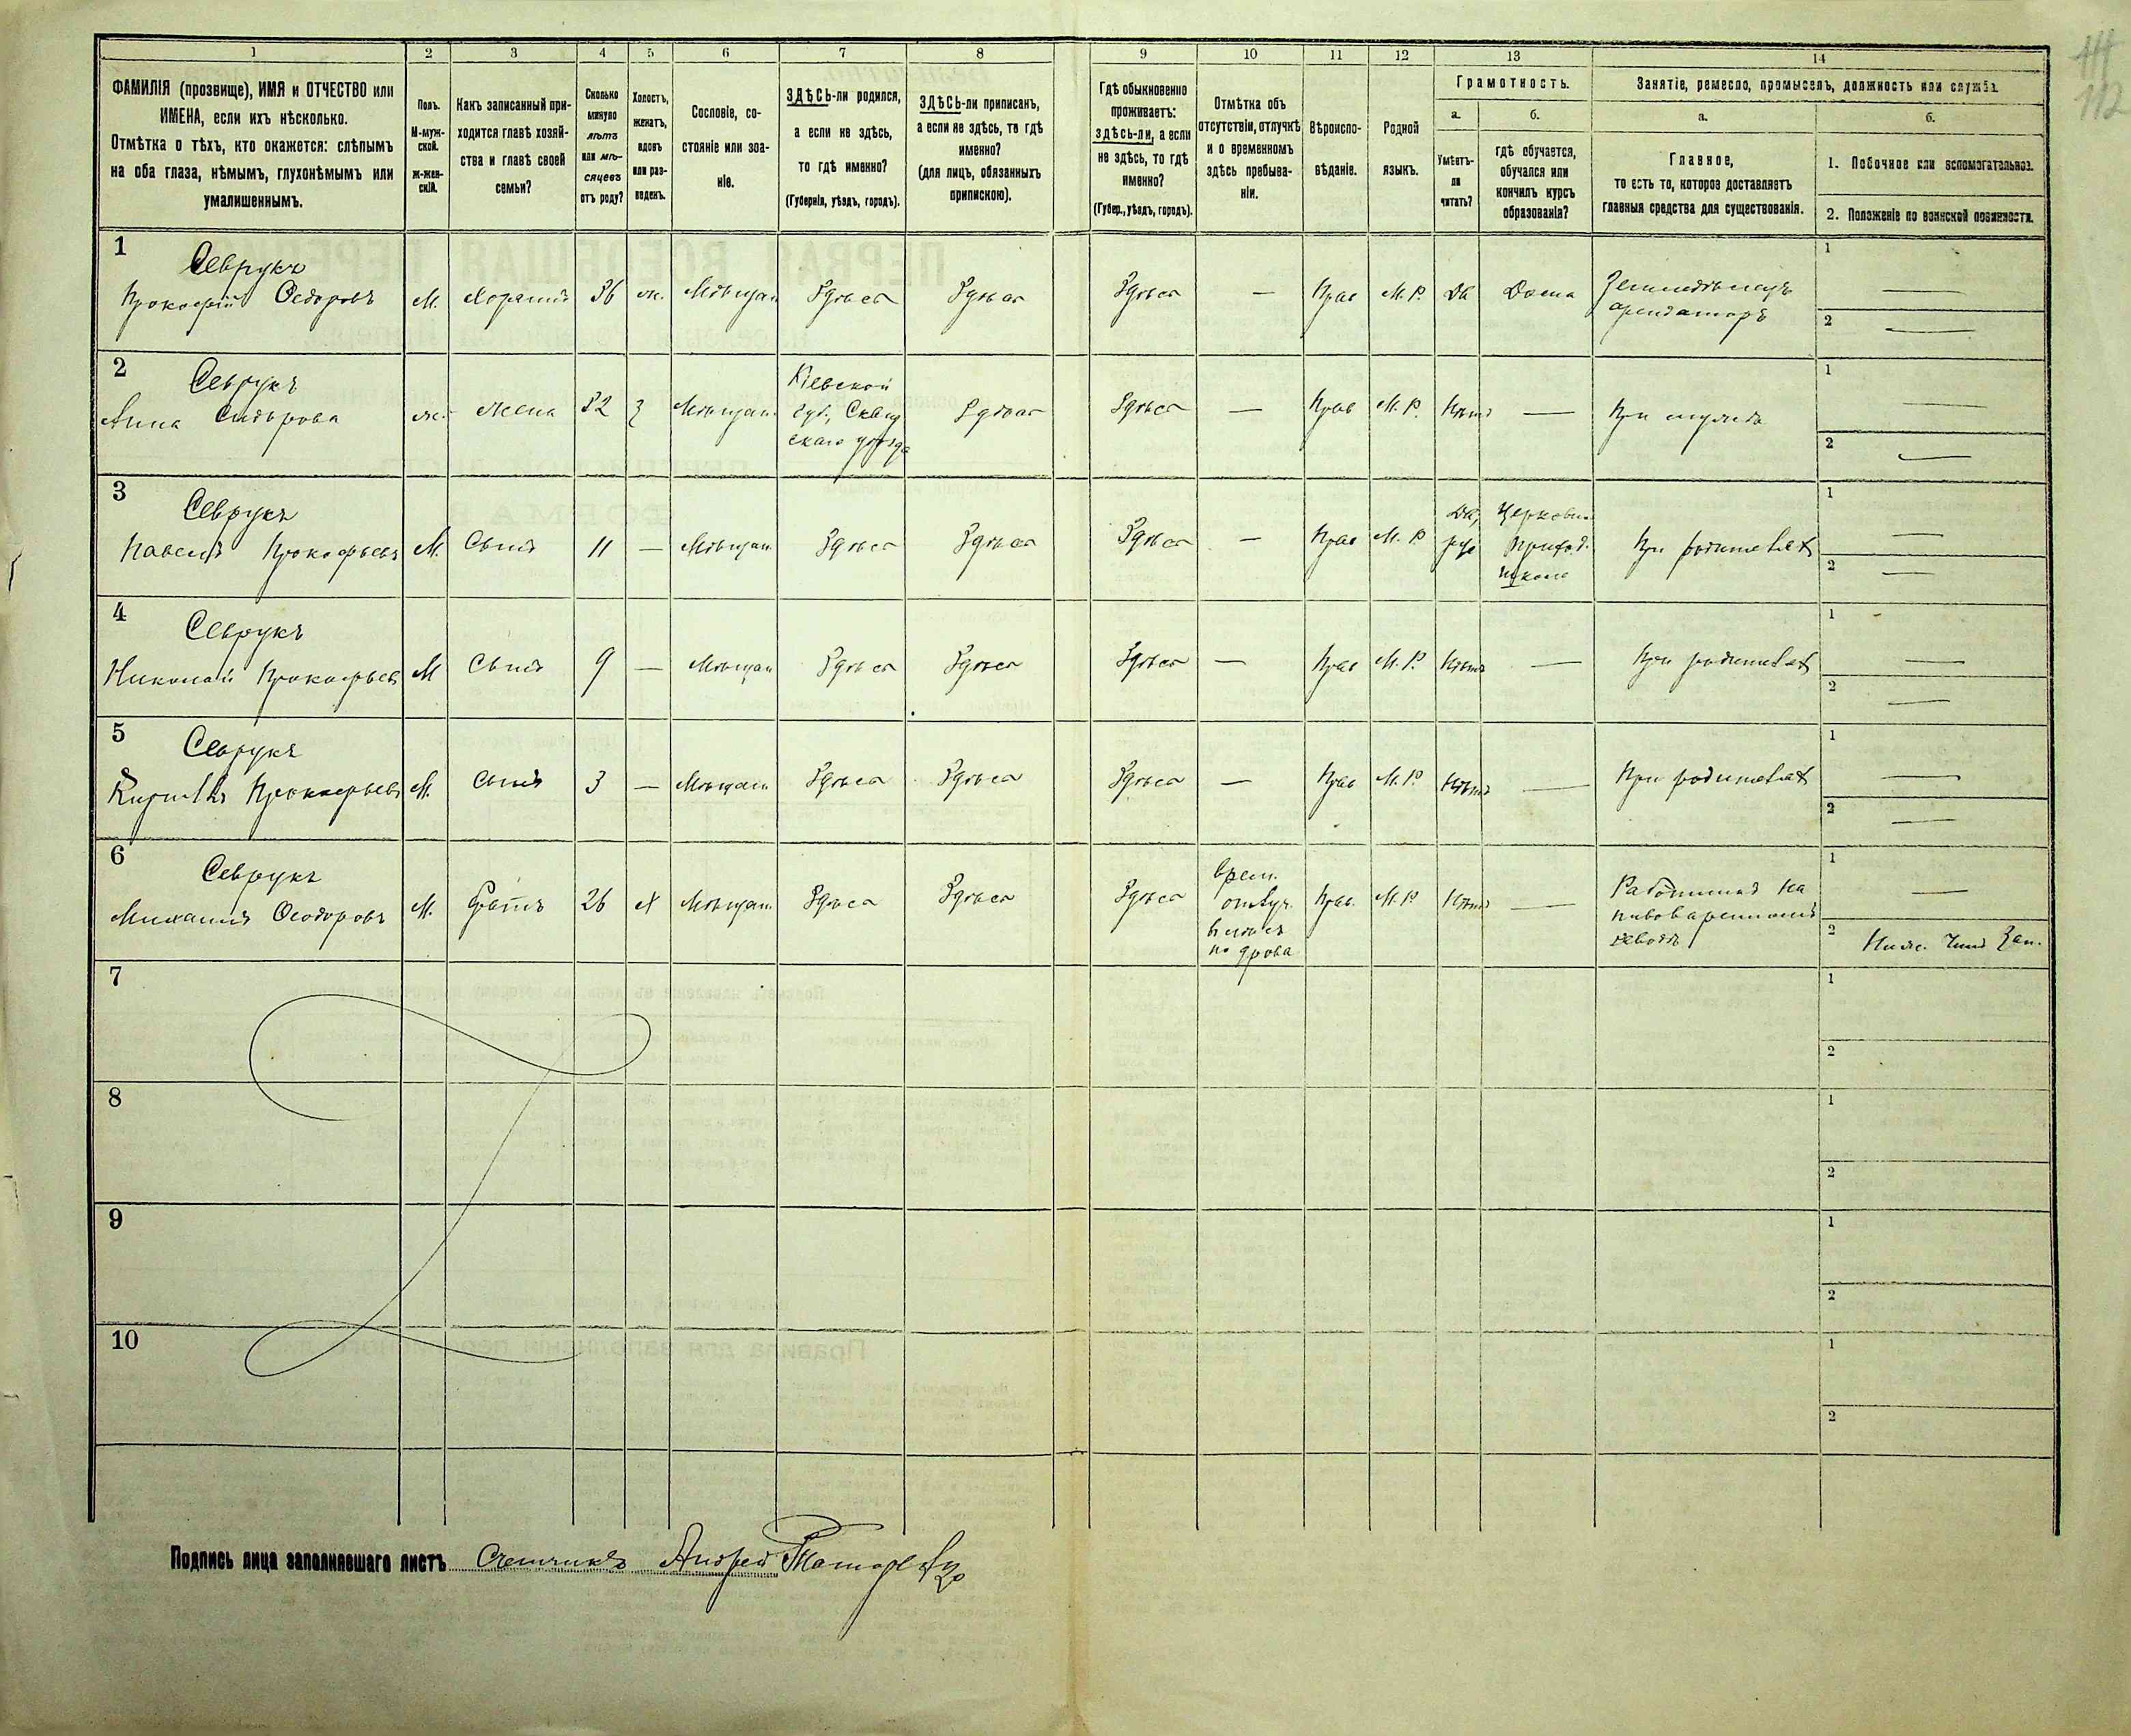 111
112
1
2
3
4
5
6
7
8
9
10
11
12
13
14
ФАМИЛІЯ (прозвище), ИМЯ и ОТЧЕСТВО или
ИМЕНА, если ихъ нѣсколько.
Отмѣтка о тѣхъ, кто окажется: слѣпымъ
на оба глаза, нѣмымъ, глухонѣмымъ или
умалишеннымъ.
Полъ.
М-муж-
ской.
ж-жен-
скій.
Какъ записанный при-
ходится главѣ хозяй-
ства и главѣ своей
семьи?
Сколько
минуло
лѣтъ
или мѣ-
сяцевъ
отъ роду?
Холостъ,
женатъ,
вдовъ
или раз-
веденъ.
Сословіе, со-
стояніе или зва-
ніе.
ЗДѢСЬ-ли родился,
а если не здѣсь,
то гдѣ именно?
(Губернія, уѣздъ, городъ).
ЗДѢСЬ-ли приписанъ,
а если не здѣсь, то гдѣ
именно?
(для лицъ, обязанныхъ
припискою).
Гдѣ обыкновенно
проживаетъ:
здѣсь-ли, а если
не здѣсь, то гдѣ
именно?
(Губер., уѣздъ, городъ).
Отмѣтка объ
отсутствіи, отлучкѣ
и о временномъ
здѣсь пребыва-
ніи.
Вѣроиспо-
вѣданіе.
Родной
языкъ.
Грамотность.
а.
Умѣетъ-
ли
читать?
б.
гдѣ обучается,
обучался или
кончилъ курсъ
образованія?
Занятіе, ремесло, промыселъ, должность или служба.
а.
Главное,
то есть то, которое доставляетъ
главныя средства для существованія.
б.
1. Побочное или вспомогательное.
2. Положеніе по воинской повинности.
1
Севрукъ
Прокофій Ѳедоровъ
М.
Хозяинъ
36
ж.
Мѣщан
Здѣсь
Здѣсь
Здѣсь
—
Прав
М. Р.
Да
Дома
Земледѣлецъ
арендаторъ
1 —
2 —
2
Севрукъ
Анна Сидорова
ж.
жена
32
з
Мѣщан.
Кіевской
губ., Сквир
скаго уѣзда
Здѣсь
Здѣсь
—
Прав
М. Р.
Нѣтъ
—
При мужѣ
1 —
2 —
3
Севрукъ
Павелъ Прокофьевъ
М.
Сынъ
11
—
Мѣщан
Здѣсь
Здѣсь
Здѣсь
—
Прав
М. Р
Да,
рус
Церковн.
приход.
школа
При родителях
1 —
2 —
4
Севрукъ
Николай Прокофьев
М
Сынъ
9
—
Мѣщан
Здѣсь
Здѣсь
Здѣсь
—
Прав
М. Р.
Нѣтъ
—
При родителях
1 —
2 —
5
Севрукъ
Кирилъ Прокофьевъ
М.
Сынъ
3
—
Мѣщан
Здѣсь
Здѣсь
Здѣсь
—
Прав
М. Р.
Нѣтъ
—
При родителях
1 —
2 —
6
Севрукъ
Михаилъ Ѳеодоровъ
М.
Братъ
26
х
Мѣщан.
Здѣсь
Здѣсь
Здѣсь
Врем.
отлуч.
въ лѣсъ
по дрова
Прав.
М. Р
Нѣтъ
—
Работникъ на
пивоваренномъ
заводѣ
1 —
2 Ниж. Чинъ Зап.
7
1
2
8
1
2
9
1
2
10
1
2
Подпись лица заполнявшаго листъ Счетчикъ Андрей